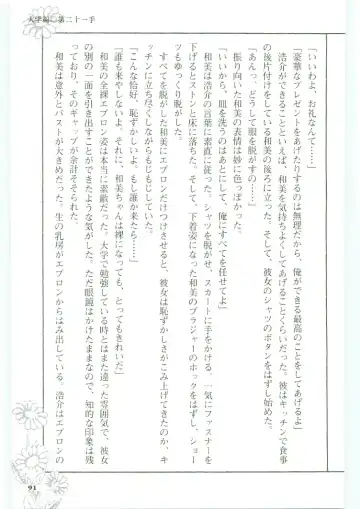 大学編◎第二十一手
「いいわよ、お礼なんて……」
「豪華なプレゼントをあげたりするのは無理だから、俺ができる最高のことをしてあげるよ」
浩介ができることといえば、和美を気持ちよくしてあげることくらいだった。彼はキッチンで食事
の後片付けをしている和美の後ろに立った。そして、彼女のシャツのボタンをはずし始めた。
「あんっ。どうして服を脱がすの……」
振り向いた和美の表情は妙に色っぽかった。
「いいから、皿を洗うのはあとにして、俺にすべてを任せてよ」
和美は浩介の言葉に素直に従った。シャツを脱がせ、スカートに手をかける。一気にファスナーを
下げるとストンと床に落ちた。そして、下着姿になった和美のブラジャーのホックをはずし、ショー
ツもゆっくり脱がした。
すべてを脱がした和美にエプロンだけつけさせると、彼女は恥ずかしさがこみ上げてきたのか、キ
ッチンに立ち尽くしながらもじもじしていた。
「こんな恰好、恥ずかしいよ。もし誰か来たら……」
「誰も来やしないよ。それに、和美ちゃんは裸になっても、とってもきれいだ」
和美の全裸エプロン姿は本当に素敵だった。大学で勉強している時とはまた違った雰囲気で、彼女
の別の一面を引き出すことができたような気がした。ただ眼鏡はかけたままなので、知的な印象は残
っており、そのギャップが余計そそられた。
和美は意外とバストが大きめだった。生の乳房がエプロンからはみ出している。浩介はエプロンの
91